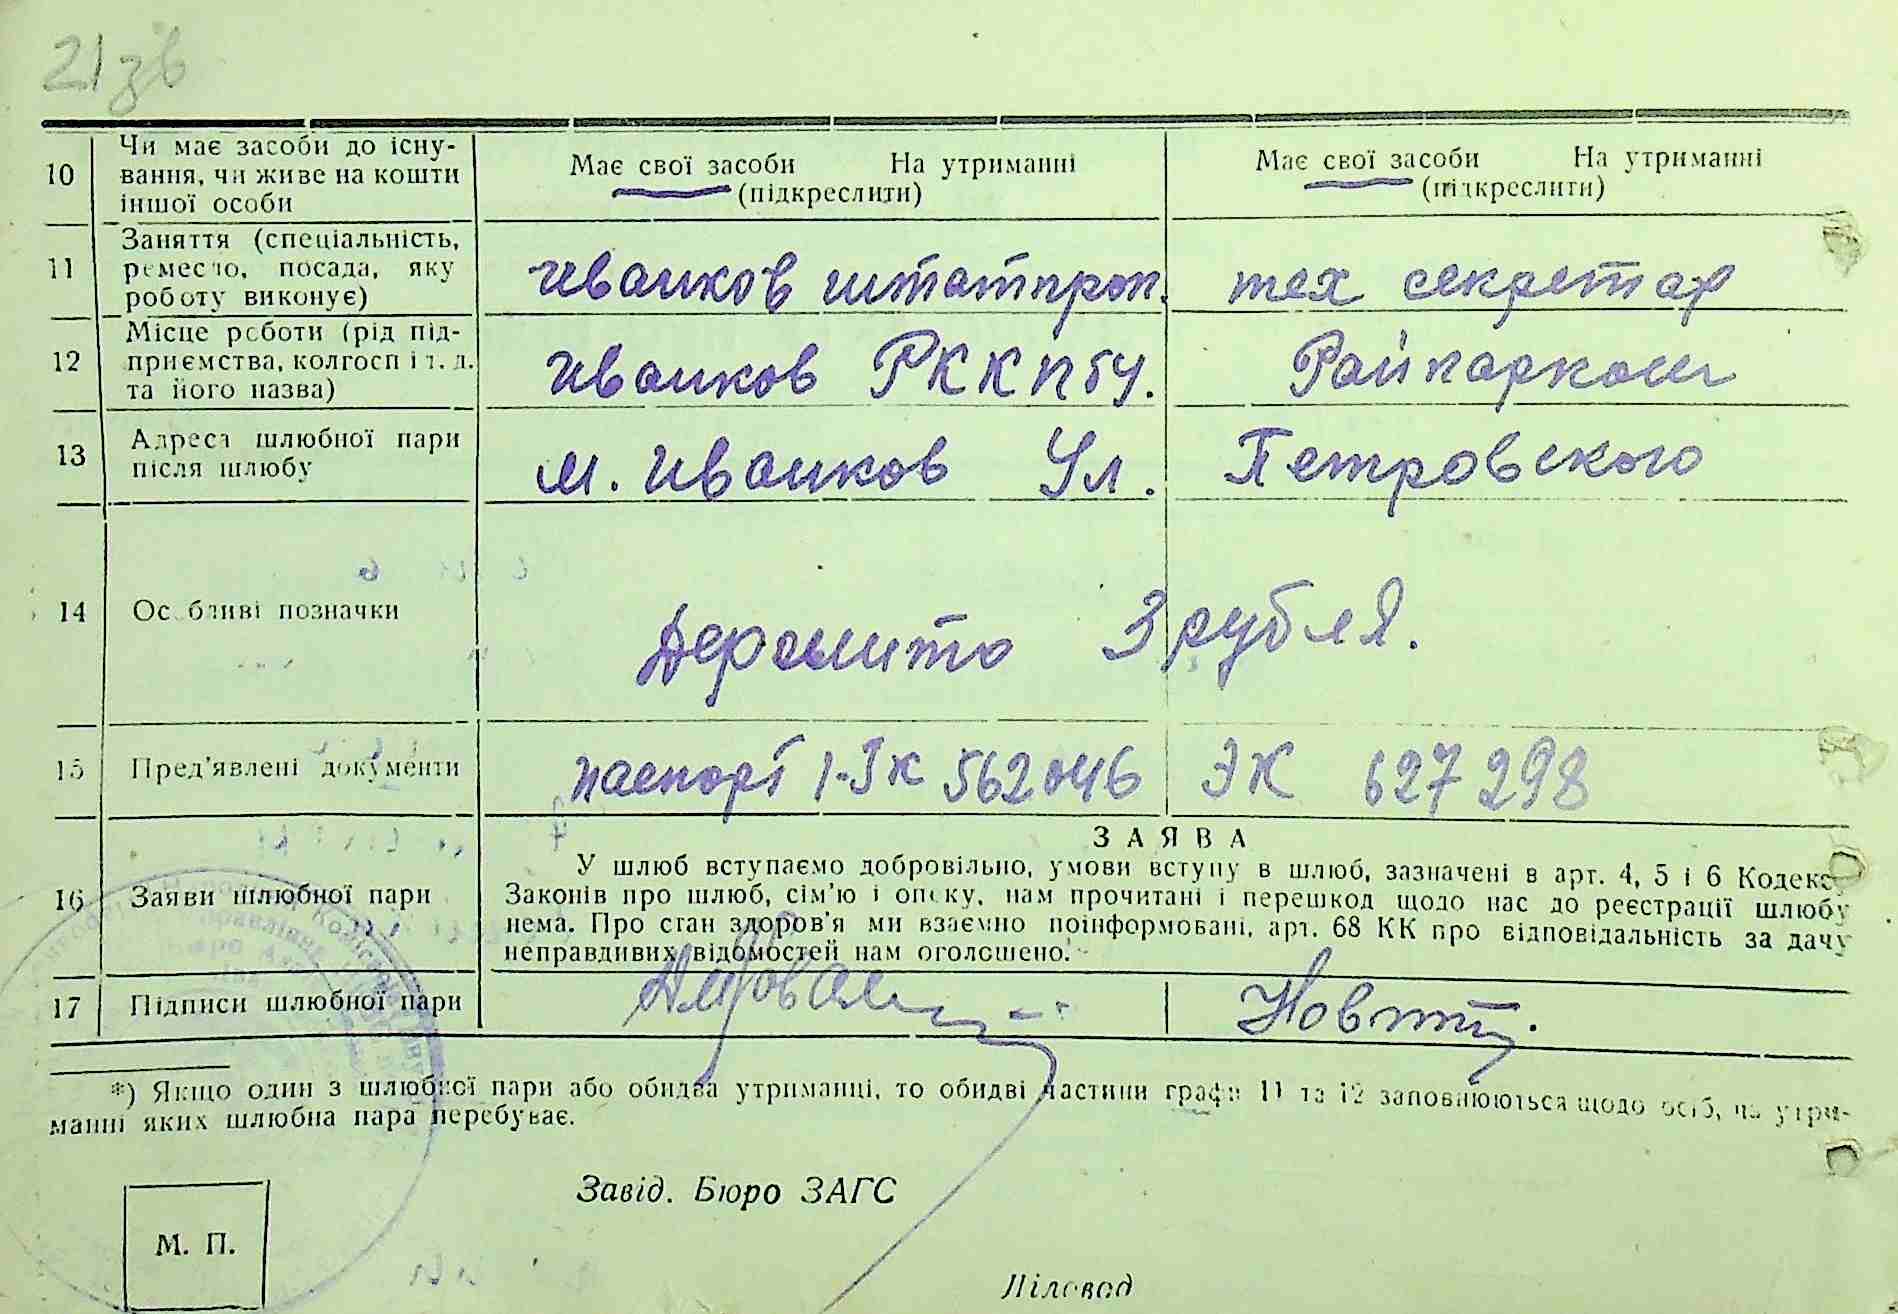 21зв
10 Чи має засоби до існу-
вання, чи живе на кошти
іншої особи
Має свої засоби На утриманні
(підкреслити)
Має свої засоби На утриманні
(підкреслити)
11 Заняття (спеціальність,
ремесло, посада, яку
роботу виконує)
Иванков штатпроп. тех секретар
12 Місце роботи (рід під-
приємства, колгосп і т. д.
та його назва)
Иванков РККПбУ. Райпарком
13 Адреса шлюбної пари
після шлюбу
м. Иванков Ул. Петровского
14 Особливі позначки
Держмито 3 рубля.
15 Пред'явлені документи
паспорт 562046 ЭК 627298
16 Заяви шлюбної пари
ЗАЯВА
У шлюб вступаємо добровільно, умови вступу в шлюб, зазначені в арт. 4, 5 і 6 Кодекс
Законів про шлюб, сім'ю і опіку, нам прочитані і перешкод щодо нас до реєстрації шлюбу
нема. Про стан здоров'я ми взаємно поінформовані, арт. 68 КК про відповідальність за дачу
неправдивих відомостей нам оголошено.
17 Підписи шлюбної пари
*) Якщо один з шлюбної пари або обидва утриманці, то обидві частини графи 11 та 12 заповнюються щодо осіб, на утри-
манні яких шлюбна пара перебуває.
Завід. Бюро ЗАГС
М. П.
Діловод